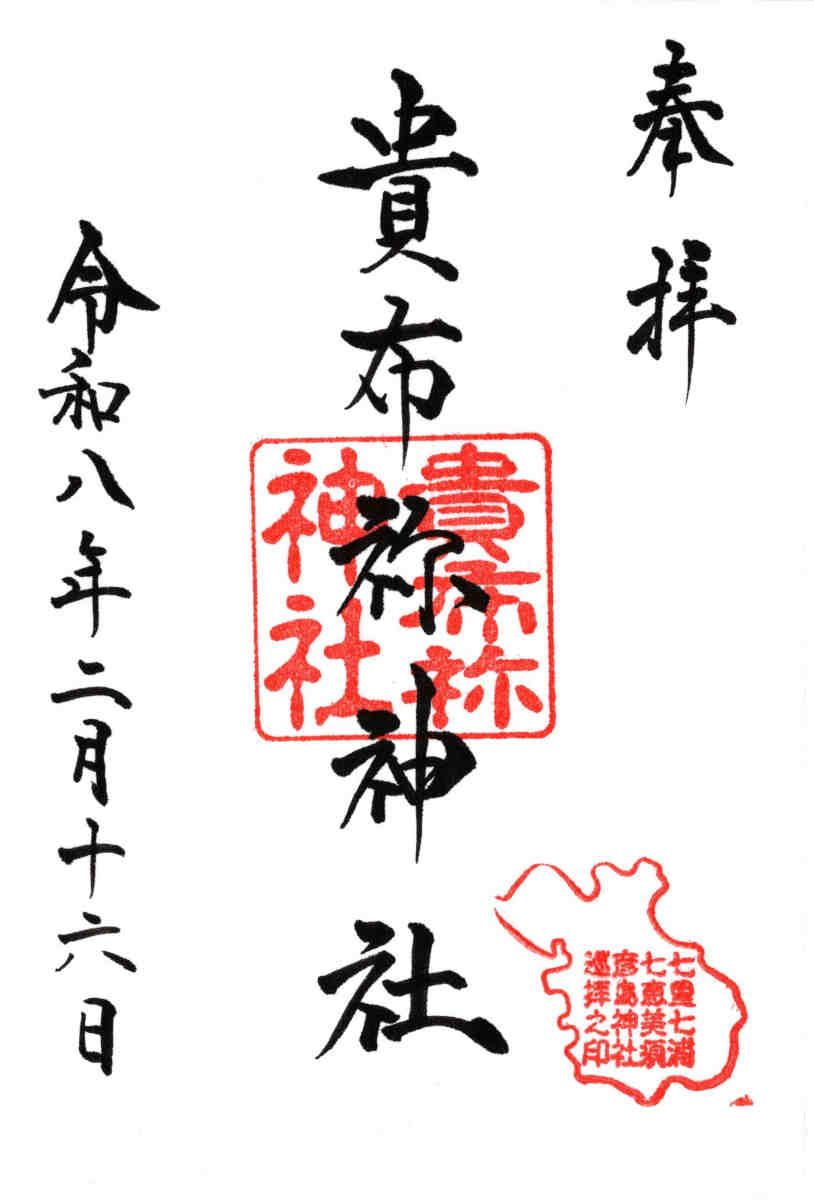 奉拝
貴布祢神社
貴布祢
神社
令和八年二月十六日
七里七浦
七恵美須
彦島神社
巡拝之印